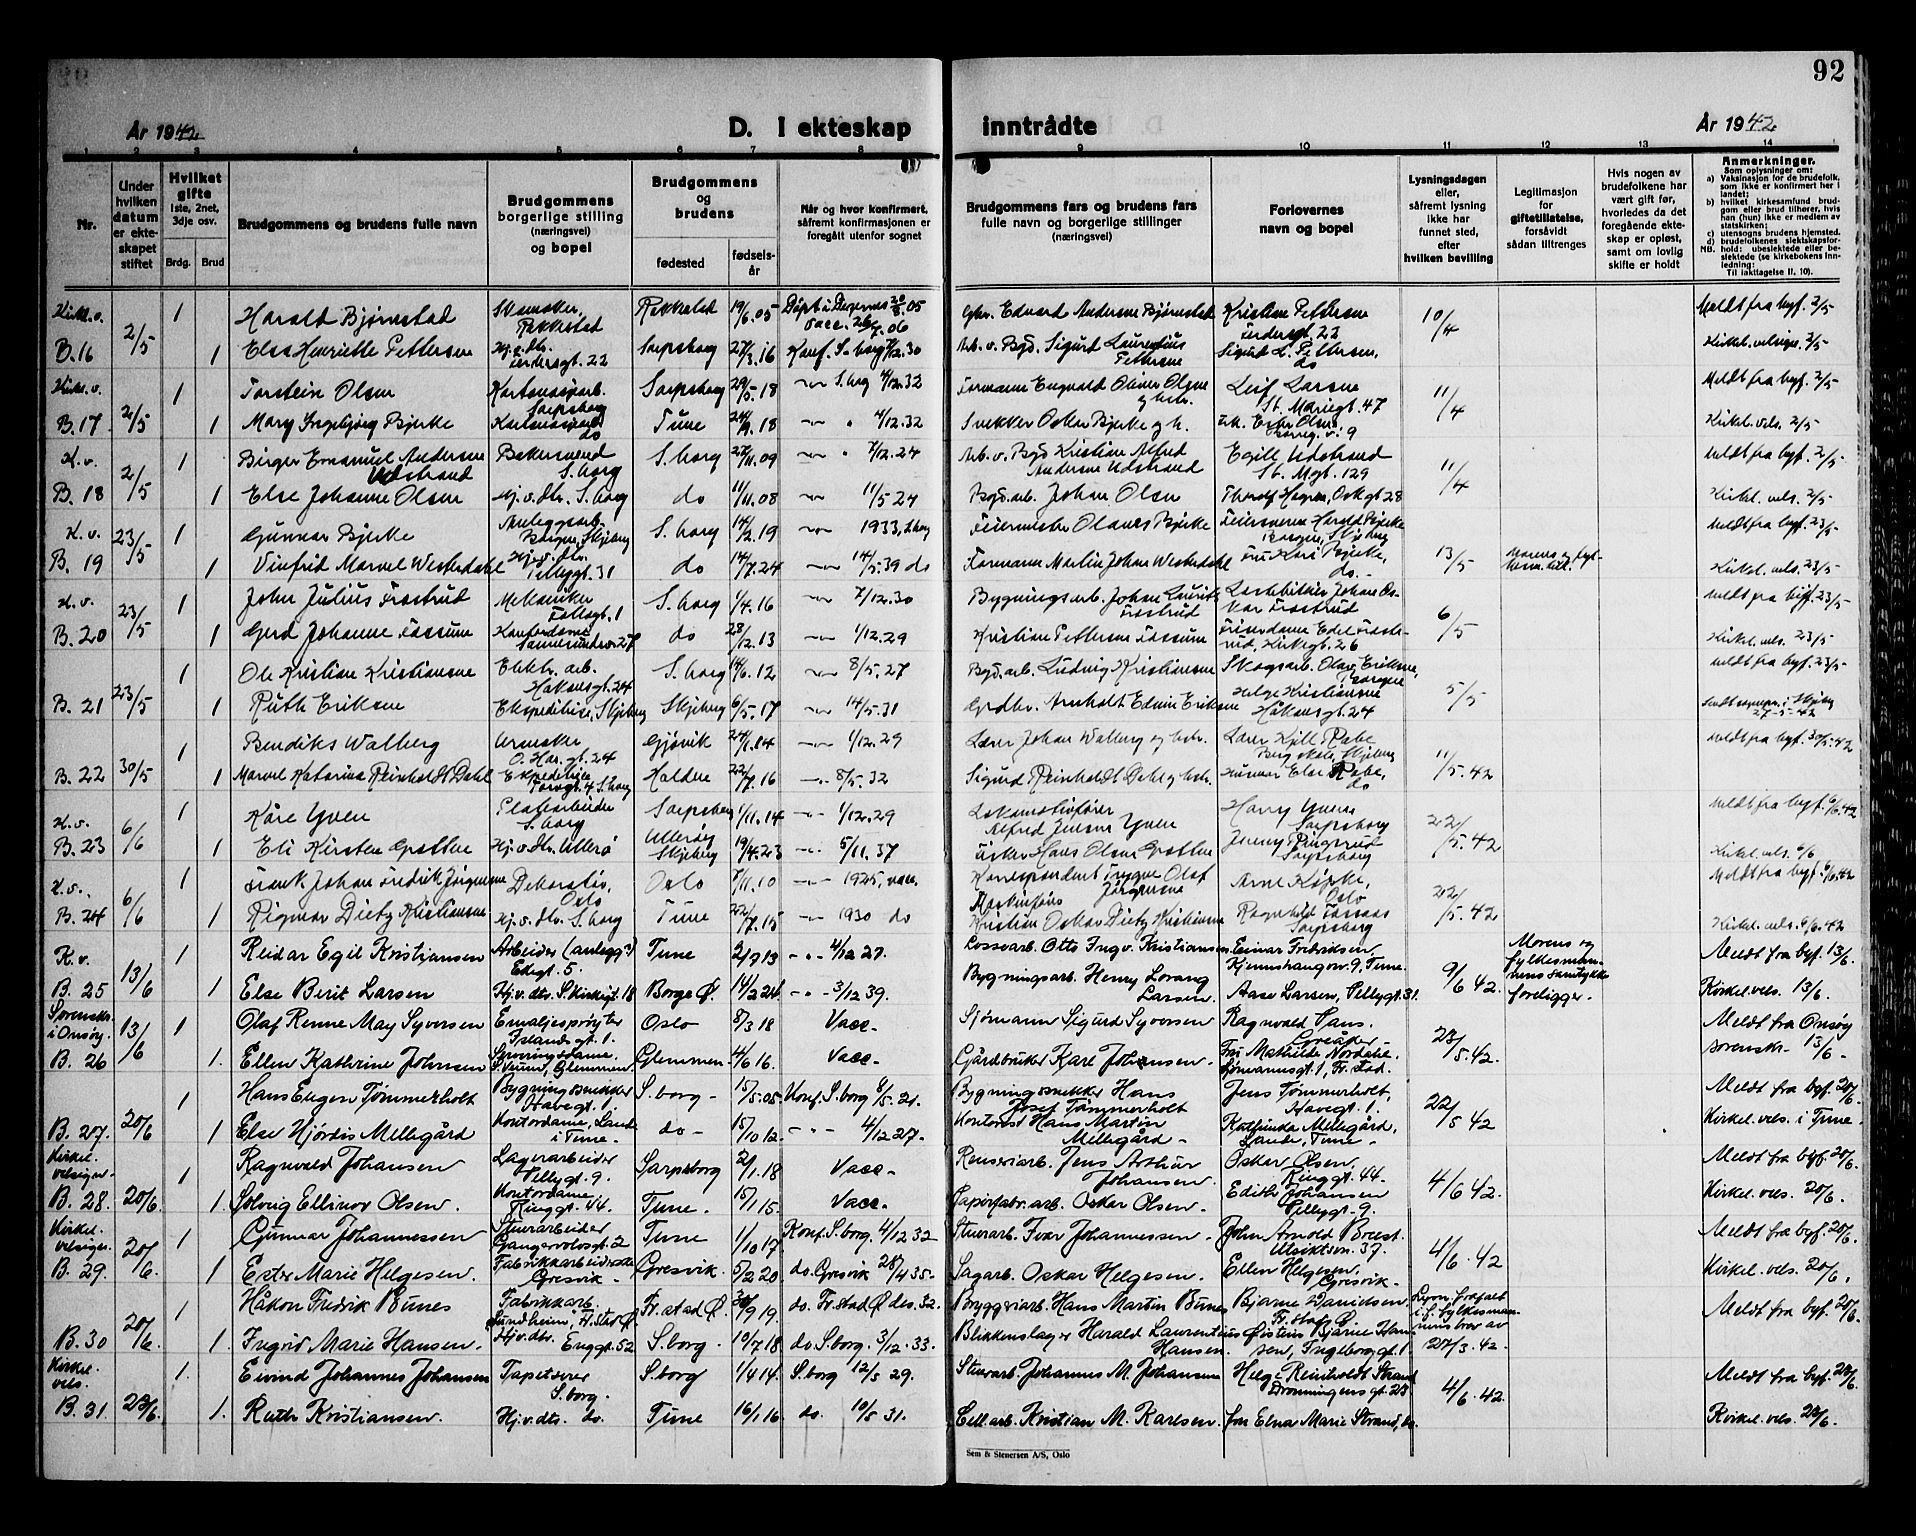 92
År 1942
D. I ekteskap
inntrådte
År 1942
1 2 3 4 5 6 7 8 9 10 11 12 13 14
Nr.
Under hvilken datum er ekte-skapet stiftet
Hvilket gifte
1ste, 2net, 3dje osv.
Brdg. Brud
Brudgommens og brudens fulle navn
Brudgommens borgerlige stilling (næringsvei) og bopel
Brudgommens og brudens
fødested
fødsels-år
Når og hvor konfirmert, såfremt konfirmasjonen er foregått utenfor sognet
Brudgommens fars og brudens fars fulle navn og borgerlige stillinger (næringsvei)
Forlovernes navn og bopel
Lysningsdagen eller, såfremt lysning ikke har funnet sted, efter hvilken bevilling
Legitimasjon for giftetillatelse, forsåvidt sådan tiltrenges
Hvis nogen av brudefolkene har vært gift før, hvorledes da det foregående ekte-skap er opløst, samt om lovlig skifte er holdt
Anmerkninger.
Som oplysninger om:
a) Vaksinasjon for de brudefolk, som ikke er konfirmert her i landet;
b) hvilket kirkesamfund brud-gom eller brud tilhører, hvis han (hun) ikke er medlem av statskirken;
c) utensogns brudens hjemsted.
d) brudefolkenes slektskapsfor-hold: ubeslektede eller be-slektede (se kirkebokens Inn-ledning:
NB.
Til iakttagelse II, 10).
2/5 1 Harald Bjørnstad Rakkestad 19/6.05 Edvard Andersen Bjørnstad Kristian Pettersen 10/4 Meldt fra byf. 2/5
B.16 1 Else Henriette Pettersen Sarpsborg 27/3.16 Konf. S.borg Sigurd Laurentius Pettersen Sigurd L. Pettersen, do Kirkel. velsign. 2/5
2/5 1 Torstein Olsen Sarpsborg S.borg 4/12.32 Formann Engvald Oliver Olsen Leif Larsen St. Mariegt. 47 11/4 Meldt fra byf. 2/5
B.17 1 Mary Ingebjørg Bjerke Tune 4/12.32 Snekker Oskar Bjerke Kirkel. vels. 2/5
K.v. 2/5 1 Birger Emanuel Andersen Udstrand Bakersvend S.borg S.borg 22/11.09 7/12.24 Kristian Alfred Andersen Udstrand Egill Udstrand St. Mgt. 129 11/4 Meldt fra byf. 2/5
B. 18 1 Else Johanne Olsen Hj.v.dtr. S.borg do 11/11.08 11/5 24 Bygd.arb. Johan Olsen Kirkel. vels. 2/5
K.v. 23/5 1 Gunnar Bjerke Anleggsarb. Borgen, Skjeberg S.borg 14/2.19 1933, S.borg Feiermester Olaves Bjerke Harald Bjerke Borgen, Skjeberg 13/5 Meldt fra byf. 23/5
B. 19 1 Vinfrid Marvel Westerdahl Hj.v.dtr. Pellygt. 31 do 14/7.24 14/5.39 do Formann Merlin Johan Westerdahl Fru Kari Bjerke, do. Kirkel. vels. 23/5
K.v. 23/5 1 John Julius Frøstrud Mekaniker S.borg 1/4.16 7/12.30 Bygningsarb. Johan Laurits Frøstrud 6/5 Meldt fra byf. 23/5
B. 20 1 Gerd Johanne Fossum Kontordame do 28/12.13 1/12.29 Kristian Pettersen Fossum Kirkegt. 26 Kirkel. vels. 23/5
23/5 1 Ole Kristian Kristiansen Elektr. arb. Håkonsgt. 24 S.borg 14/6.12 8/5.27 Bygd.arb. Ludvig Kristiansen Skogsarb. Olav Eriksen, Borgen 5/5 Meldt fra byf. 23/5
B. 21 1 Ruth Eriksen Ekspeditrise, Skjeberg Skjeberg 6/5.17 14/5.31 Gårdbr. Arnholt Edvin Eriksen Helge Kristiansen Håkonsgt. 24 27-5-42
30/5 1 Bendiks Walberg Urmaker O. Har. gt. 24 Gjøvik 24/1.14 1/12.29 Lærer Johan Walberg Lærer Kjell Rabe 11/5.42 Meldt fra byf. 30/5.42
B. 22 1 Marvel Katarina Reinholdt Dahl Ekspeditrise Torvgt. 4 S.borg Halden 22/7.16 8/5.32 Sigurd Reinholdt Dahl Else Rabe, do
K.v. 6/6 1 Kåre Yven Platearbeider S.borg Sarpsborg 1/11.14 1/12.29 Lokomotivfører Alfred Jensen Yven Harry Yven Sarpsborg 22/5.42 Meldt fra byf. 6/6.42
B. 23 1 Eli Kirsten Grotten Hj.v.dtr. Ullerø Ullerøy Skjeberg 19/4.23 5/11.37 Fisker Hans Olsen Grotten Jenny Ringsrud Sarpsborg Kirkel. vels. 6/6
K.v. 6/6 1 Frank Johan Fredrik Jørgensen Dekoratør, Oslo Oslo 7/11.10 1925, vacc. Korrespondent Trygve Olaf Jørgensen Arne Köpke, Oslo 22/5.42 Meldt fra byf. 6/6.42
B. 24 1 Rigmor Dietz Kristiansen Hj.v.dtr. S.borg Tune 22/7.15 1930 do Maskinfører Kristian Oskar Dietz Kristiansen Ragnhild Fossaas Sarpsborg Kirkel. vels. 6/6.42
K.v. 13/6 1 Reidar Egil Kristiansen Arbeider (anlegg) Edgt 5. Tune 2/7 13 4/12 27. Lossearb. Otto Ingv. Kristiansen Einar Fredriksen Kjennshaugv. 9, Tune. 9/6 42. Morens og fylkesman-nens samtykke foreligger. Meldt fra byf. 13/6.
B. 25 1 Else Berit Larsen Hj.v.dtr. Borge Ø. 14/2 24. 3/12 39. Bygningsarb. Henry Lorang Larsen. Aase Larsen, Pellygt. 31. Kirkel. vels. 13/6.
Sorenskr. i Onsøy. 13/6 1 Olaf Renne May Syversen Emaljesprøyter Islands gt. 1. Oslo 8/3 18 Vacc- Sjømann Sigurd Syversen Ragnvald Hans. Greåker. 23/5.42. Meldt fra Onsøy sorenskr. 13/6-
B. 26 1. Ellen Kathrine Johnsen Serveringsdame, S. Veum, Glemmen. Glemmen 4/6 16. Vacc- Gårdbruker Karl Johansen - Fru Mathilde Nordahl, Lømannsgt. 1, Fr.stad.
20/6 1 Hans Eugen Tømmerholt Bygningssnekker Havegt. 1. S.borg - 15/5.05. Konf. S.borg 8/5.21. Bygningssnekker Hans Josef Tømmerholt Jens Tømmerholt, Havegt. 1. 22/5 42 Meldt fra byf. 20/6.
B. 27. 1 Else Hjørdis Mellegård Kontordame, Lande i Tune. do- 15/10 12. 4/12 27. Kontorist Hans Martin Mellegård - Mellegård, Lande, Tune - Kirkel. vels. i Tune -
Kirkel. velsign. 1 Ragnvald Johansen Lagerarbeider Pellygt. 9. Sarpsborg 2/1.18 Vacc- Jens Arthur Johansen. Oskar Olsen, Ringgt. 44. 4/6 42. Meldt fra byf. 20/6.
B. 28. 20/6. 1 Solveig Ellinor Olsen. Kontordame Ringgt. 44. Tune. 15/1 15. Vacc- Papirfabr. arb. Oskar Olsen. Edith Johansen Pellygt. 9. Kirkel. vels. 20/6.
Kirkel. velsign. 20/6. 1 Gunnar Johannessen Stuerarbeider Gangerrolvsgt. 2 Tune 1/10 17 Konf. S.borg. 4/12 32 Stuerarb. Ivar Johannessen - John Arnold Brest. 37. 4/6.42 Meldt fra byf. 20/6.
B. 29. 1 Ester Marie Helgesen. Fabrikkarbeiderske Gresvik - Gresvik. 5/2 20 do. Gresvik 28/4 35. Sagarb. Oskar Helgesen. Ellen Helgesen, Gresvik - Kirkel. vels. 20/6.
20/6. 1 Håkon Fredrik Bunes Fabrikkarb. Sundheim, Fr.stad Ø. Fr.stad Ø. 30/9 19. do. Fr.stad Ø des. 32. Bryggeriarb. Hans Martin Bunes Bjarne Davidsen. Fr.stad Ø. Lysn. frafalt i.f. fylkesman-nens brev av 20/3.42. Meldt fra byf. 20/6.
B. 30 1. Ingrid Marie Hansen. Hj.v.dtr. Enggt. 52 S.borg. 10/7 18 do. S.borg. 3/12.33. Blikkenslager Harald Laurentius Hansen. Øistein Bjarne Han-sen, Ingleborggt. 1.
Kirkel. vels. 1. Eivind Johannes Johansen Tapetserer S.borg. S.borg 1/4 14. S.borg 12/5 29. Stuerarb. Johannes M. Johansen Helge Reinholdt Strand Dronningens gt. 23 4/6.42. Meldt fra byf. 23/6.
B. 31. 23/6. 1. Ruth Kristiansen. Hj.v.dtr. do. Tune 16/1.16. do. 10/5 31. Cell.arb. Kristian M. Karlsen. fru Elna Marie Strand, do. Kirkel. vels. 23/6.
Sem & Stenersen A/S, Oslo